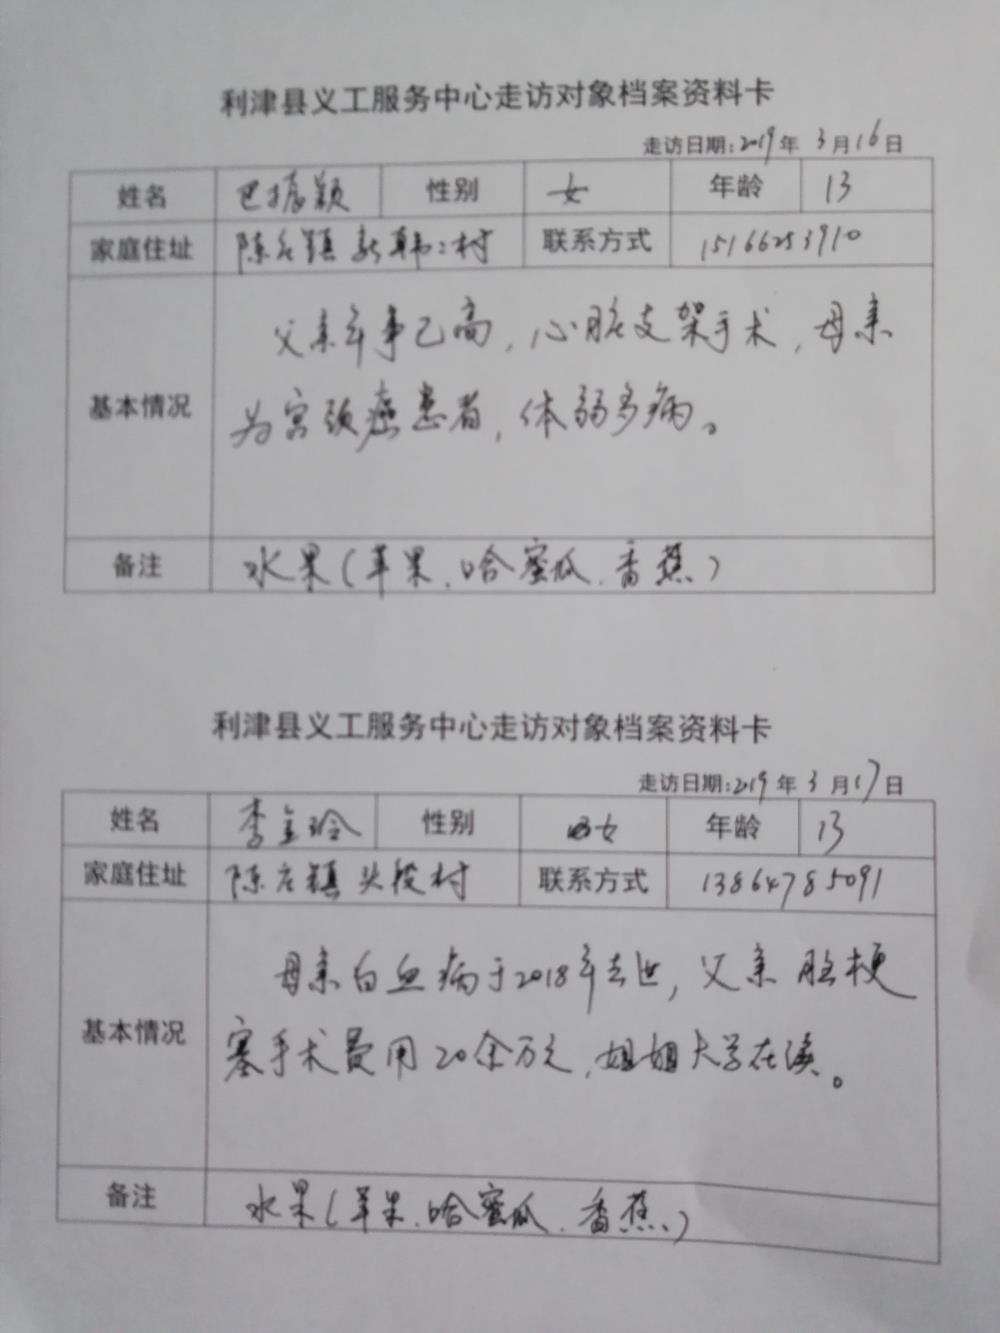 利津县义工服务中心走访对象档案资料卡
走访日期:2019年 3月16日
姓名 巴振颖 性别 女 年龄 13
家庭住址 陈庄镇新韩二村 联系方式 15166253910
基本情况
父亲年事已高,心脏支架手术,母亲
为宫颈癌患者,体弱多病。
备注 水果(苹果、哈蜜瓜、香蕉)
利津县义工服务中心走访对象档案资料卡
走访日期:2019年 3月17日
姓名 李金玲 性别 女 年龄 13
家庭住址 陈庄镇头段村 联系方式 13864785091
基本情况
母亲白血病于2018年去世,父亲脑梗
塞手术费用20余万元,姐姐大学在读。
备注 水果(苹果、哈蜜瓜、香蕉、)